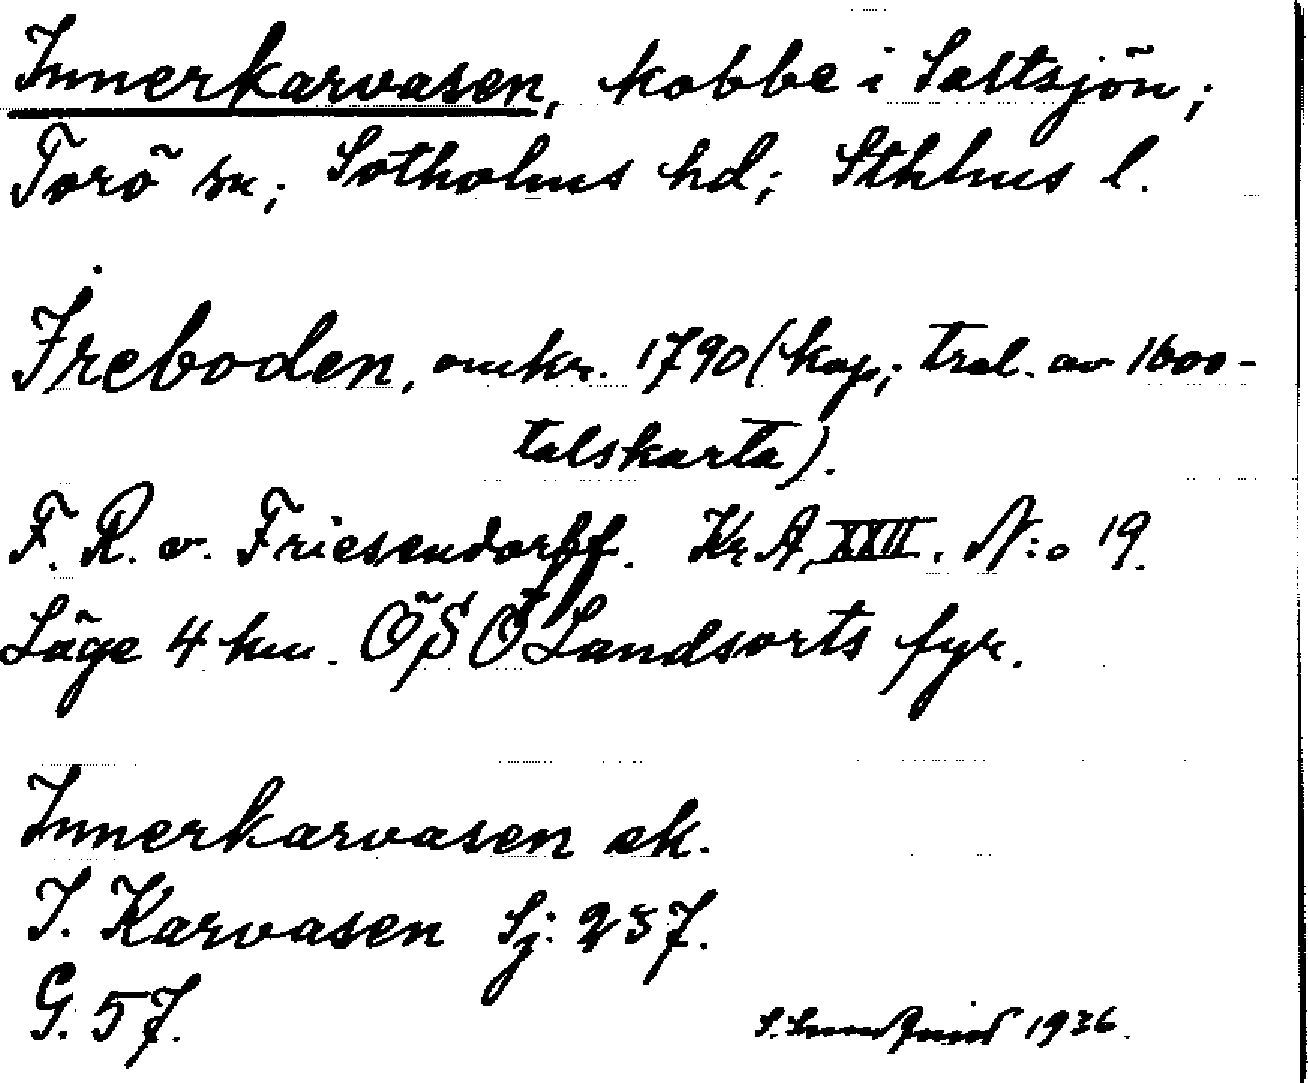 Innerkarvasen, kobbe i Saltsjön;
Torö sn; Sotholms hd; Sthlms l.
Ireboden, omkr. 1790 (kop; trol. av 1600-
talskarta).
F. R. v. Friesendorff. Kr A, XXII. N:o 19.
Läge 4 km. ÖSÖ Landsorts fyr.
Innerkarvasen ek.
I. Karvasen Sj: 237.
G. 57.
1936.